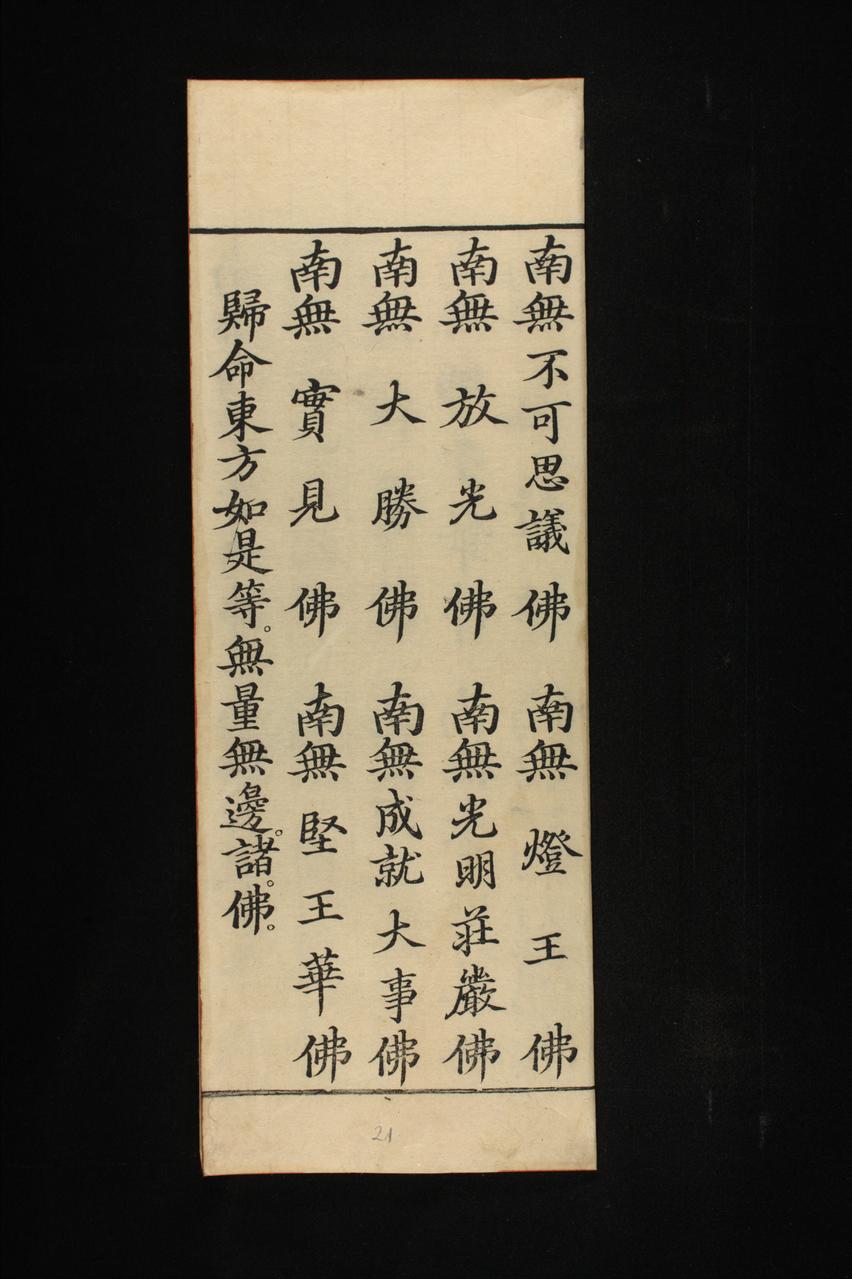 南無不可思議佛 南無燈王佛
南無放光佛 南無光明莊嚴佛
南無大勝佛 南無成就大事佛
南無實見佛 南無堅王華佛
歸命東方如是等。無量無邊。諸。佛。
21